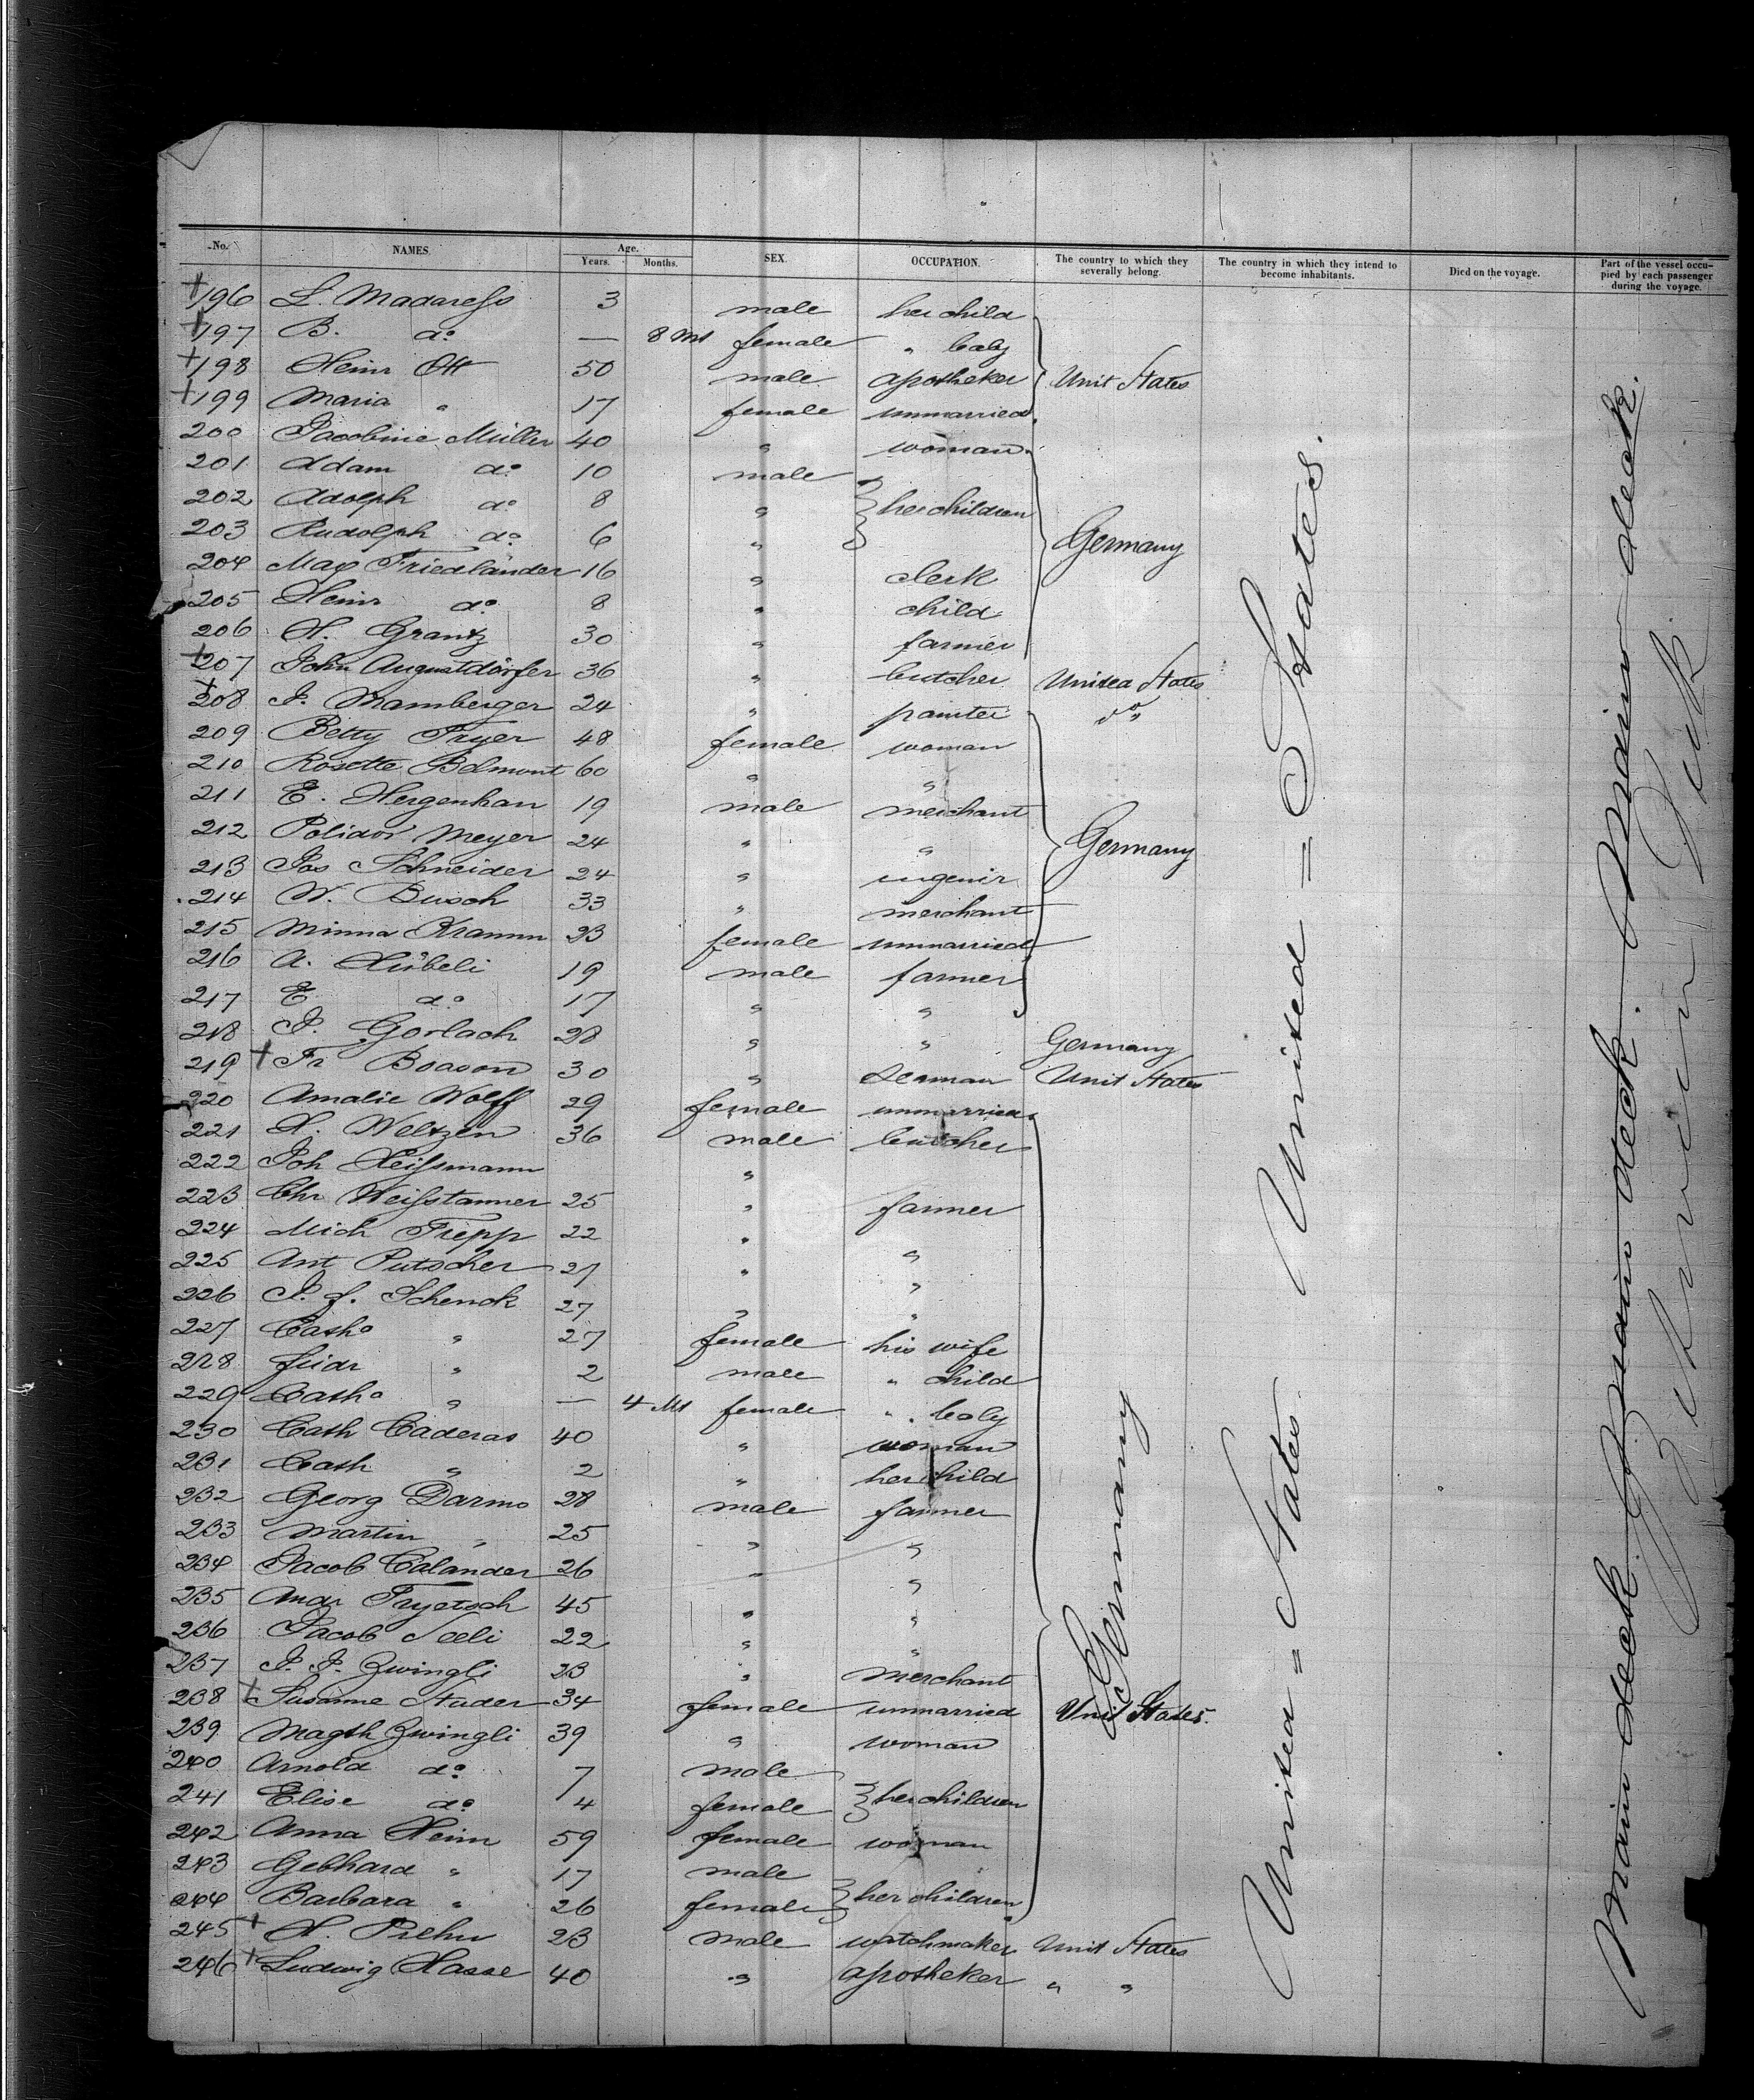 No. NAMES Age. Years. Months. SEX. OCCUPATION. The country to which they severally belong. The country in which they intend to become inhabitants. Died on the voyage. Part of the vessel occupied by each passenger during the voyage.
+196 L. Madaress 3 male her child
+197 B. do — 8 Mt female " baby
+198 Heinr Ott 50 male apotheker Unit States
+199 Maria " 17 female unmarried
200 Jacobine Müller 40 " woman
201 Adam do 10 male
202 Adolph do 8 " her children
203 Rudolph do 6 " Germany
204 Max Friedländer 16 " clerk
205 Heinr do 8 " child
206 H. Grantz 30 " farmer
+207 John Augustdörfer 36 " butcher United States
+208 J. Mamberger 24 " painter do
209 Betty Fryer 48 female woman
210 Rosette Belmont 60 " "
211 E. Hergenhan 19 male merchant
212 Polidor Meyer 24 " " Germany
213 Jos Schneider 24 " ingenir
214 W. Busch 33 " merchant
215 Minna Kramm 23 female unmarried
216 A. Hübeli 19 male farmer
217 E. do 17 " "
218 J. Gorlach 28 " " Germany
219 + Fr Boason 30 " Seaman Unit States
220 Amalie Wolff 29 female unmarried
221 H. Weltzen 36 male butcher
222 Joh Heissmann "
223 Chr Weisstanner 25 " farmer
224 Mich Trepp 22 " "
225 Ant Putscher 21 " "
226 J. J. Schenck 27 " "
227 Catha " 27 female his wife
228 " 2 male " child
229 Catha " — 4 Mt female " baby
230 Cath Caderas 40 " woman
231 Cath " 2 " her child
232 Georg Darms 28 male farmer
233 Martin " 25 " "
234 Jacob Calander 26 " "
235 Andr Fryetsch 45 " "
236 Jacob Seeli 22 " " Germany
237 J. J. Zwingli 23 " Merchant
238 + Susanne Studer 34 female unmarried Unit States.
239 Magth Zwingli 39 " woman
240 Arnold do 7 male
241 Elise do 4 female her children
242 Anna Heim 59 female woman
243 Gebhard " 17 male
244 Barbara " 26 female her children
245 + H. Prehn 23 male watchmaker Unit States
246 + Ludwig Hasse 40 " apotheker " "
United = States United = States.
Main deck Main deck. Main deck.
Zwischen Deck